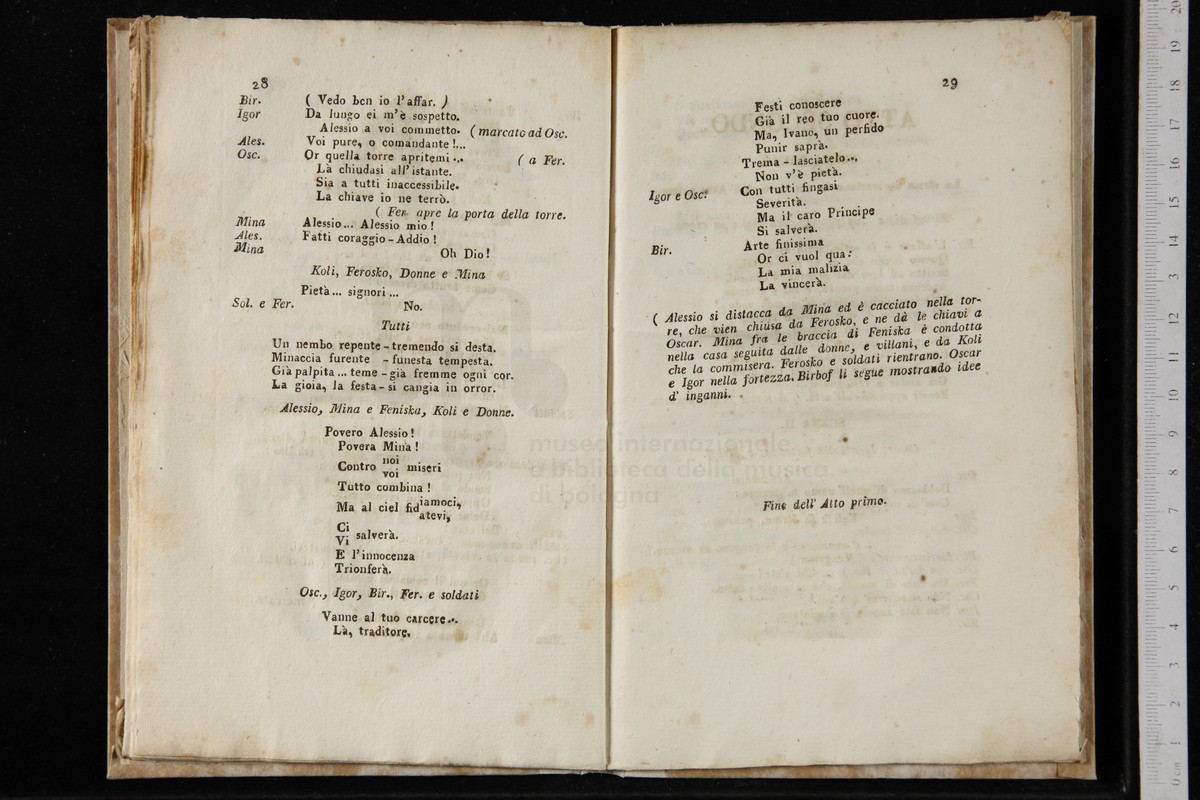 28
Bir. ( Vedo ben io l'affar. )
Igor Da lungo ei m'è sospetto.
Alessio a voi commetto. ( marcato ad Osc.
Ales. Voi pure, o comandante !...
Osc. Or quella torre apritemi ... ( a Fer.
Là chiudasi all'istante.
Sia a tutti inaccessibile.
La chiave io ne terrò.
( Fer. apre la porta della torre.
Mina Alessio ... Alessio mio !
Ales. Fatti coraggio - Addio !
Mina Oh Dio !
Koli, Ferosko, Donne e Mina
Pietà ... signori ...
Sol. e Fer. No.
Tutti
Un nembo repente - tremendo si desta.
Minaccia furente - funesta tempesta.
Già palpita ... teme - già fremme ogni cor.
La gioia, la festa - si cangia in orror.
Alessio, Mina e Feniska, Koli e Donne.
Povero Alessio !
Povera Mina !
noi
Contro miseri
voi
Tutto combina !
iamoci,
Ma al ciel fid
atevi,
Ci
salverà.
Vi
E l'innocenza
Trionferà.
Osc., Igor, Bir., Fer. e soldati
Vanne al tuo carcere ...
Là, traditore.
29
Festi conoscere
Già il reo tuo cuore.
Ma, Ivano, un perfido
Punir saprà.
Trema - lasciatelo ...
Non v'è pietà.
Igor e Osc. Con tutti fingasi
Severità.
Ma il caro Principe
Si salverà.
Bir. Arte finissima
Or ci vuol qua:
La mia malizia
La vincerà.
( Alessio si distacca da Mina ed è cacciato nella tor-
re, che vien chiusa da Ferosko, e ne dà le chiavi a
Oscar. Mina fra le braccia di Feniska è condotta
nella casa seguita dalle donne, e villani, e da Koli
che la commisera. Ferosko e soldati rientrano. Oscar
e Igor nella fortezza. Birbof li segue mostrando idee
d' inganni.
Fine dell' Atto primo.
museo internazionale
e biblioteca della musica
di bologna